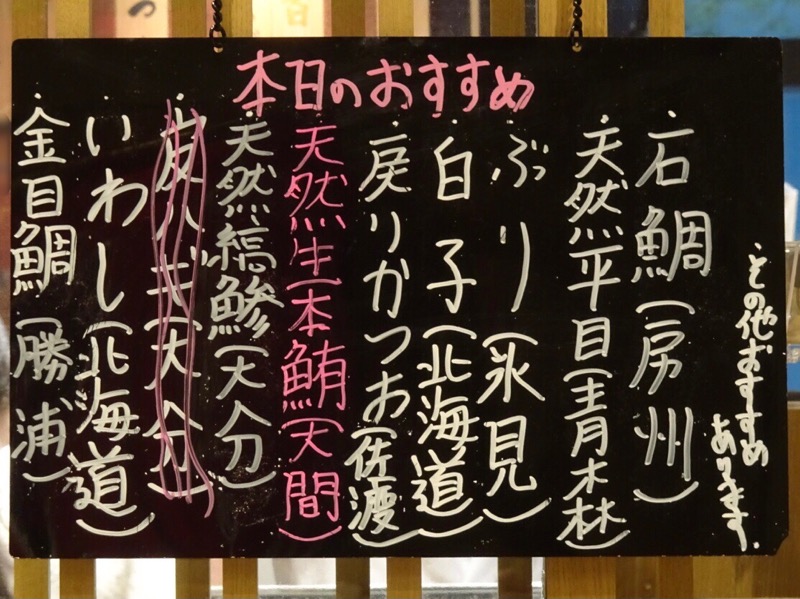 本日のおすすめ
・石鯛(房州)
・天然平目(青森)
・ぶり(氷見)
・白子(北海道)
・戻りかつお(佐渡)
・天然生本鮪(大間)
・天然縞鯵(大分)
・皮ハギ(大分)
・いわし(北海道)
・金目鯛(勝浦)
・その他おすすめ
あります。